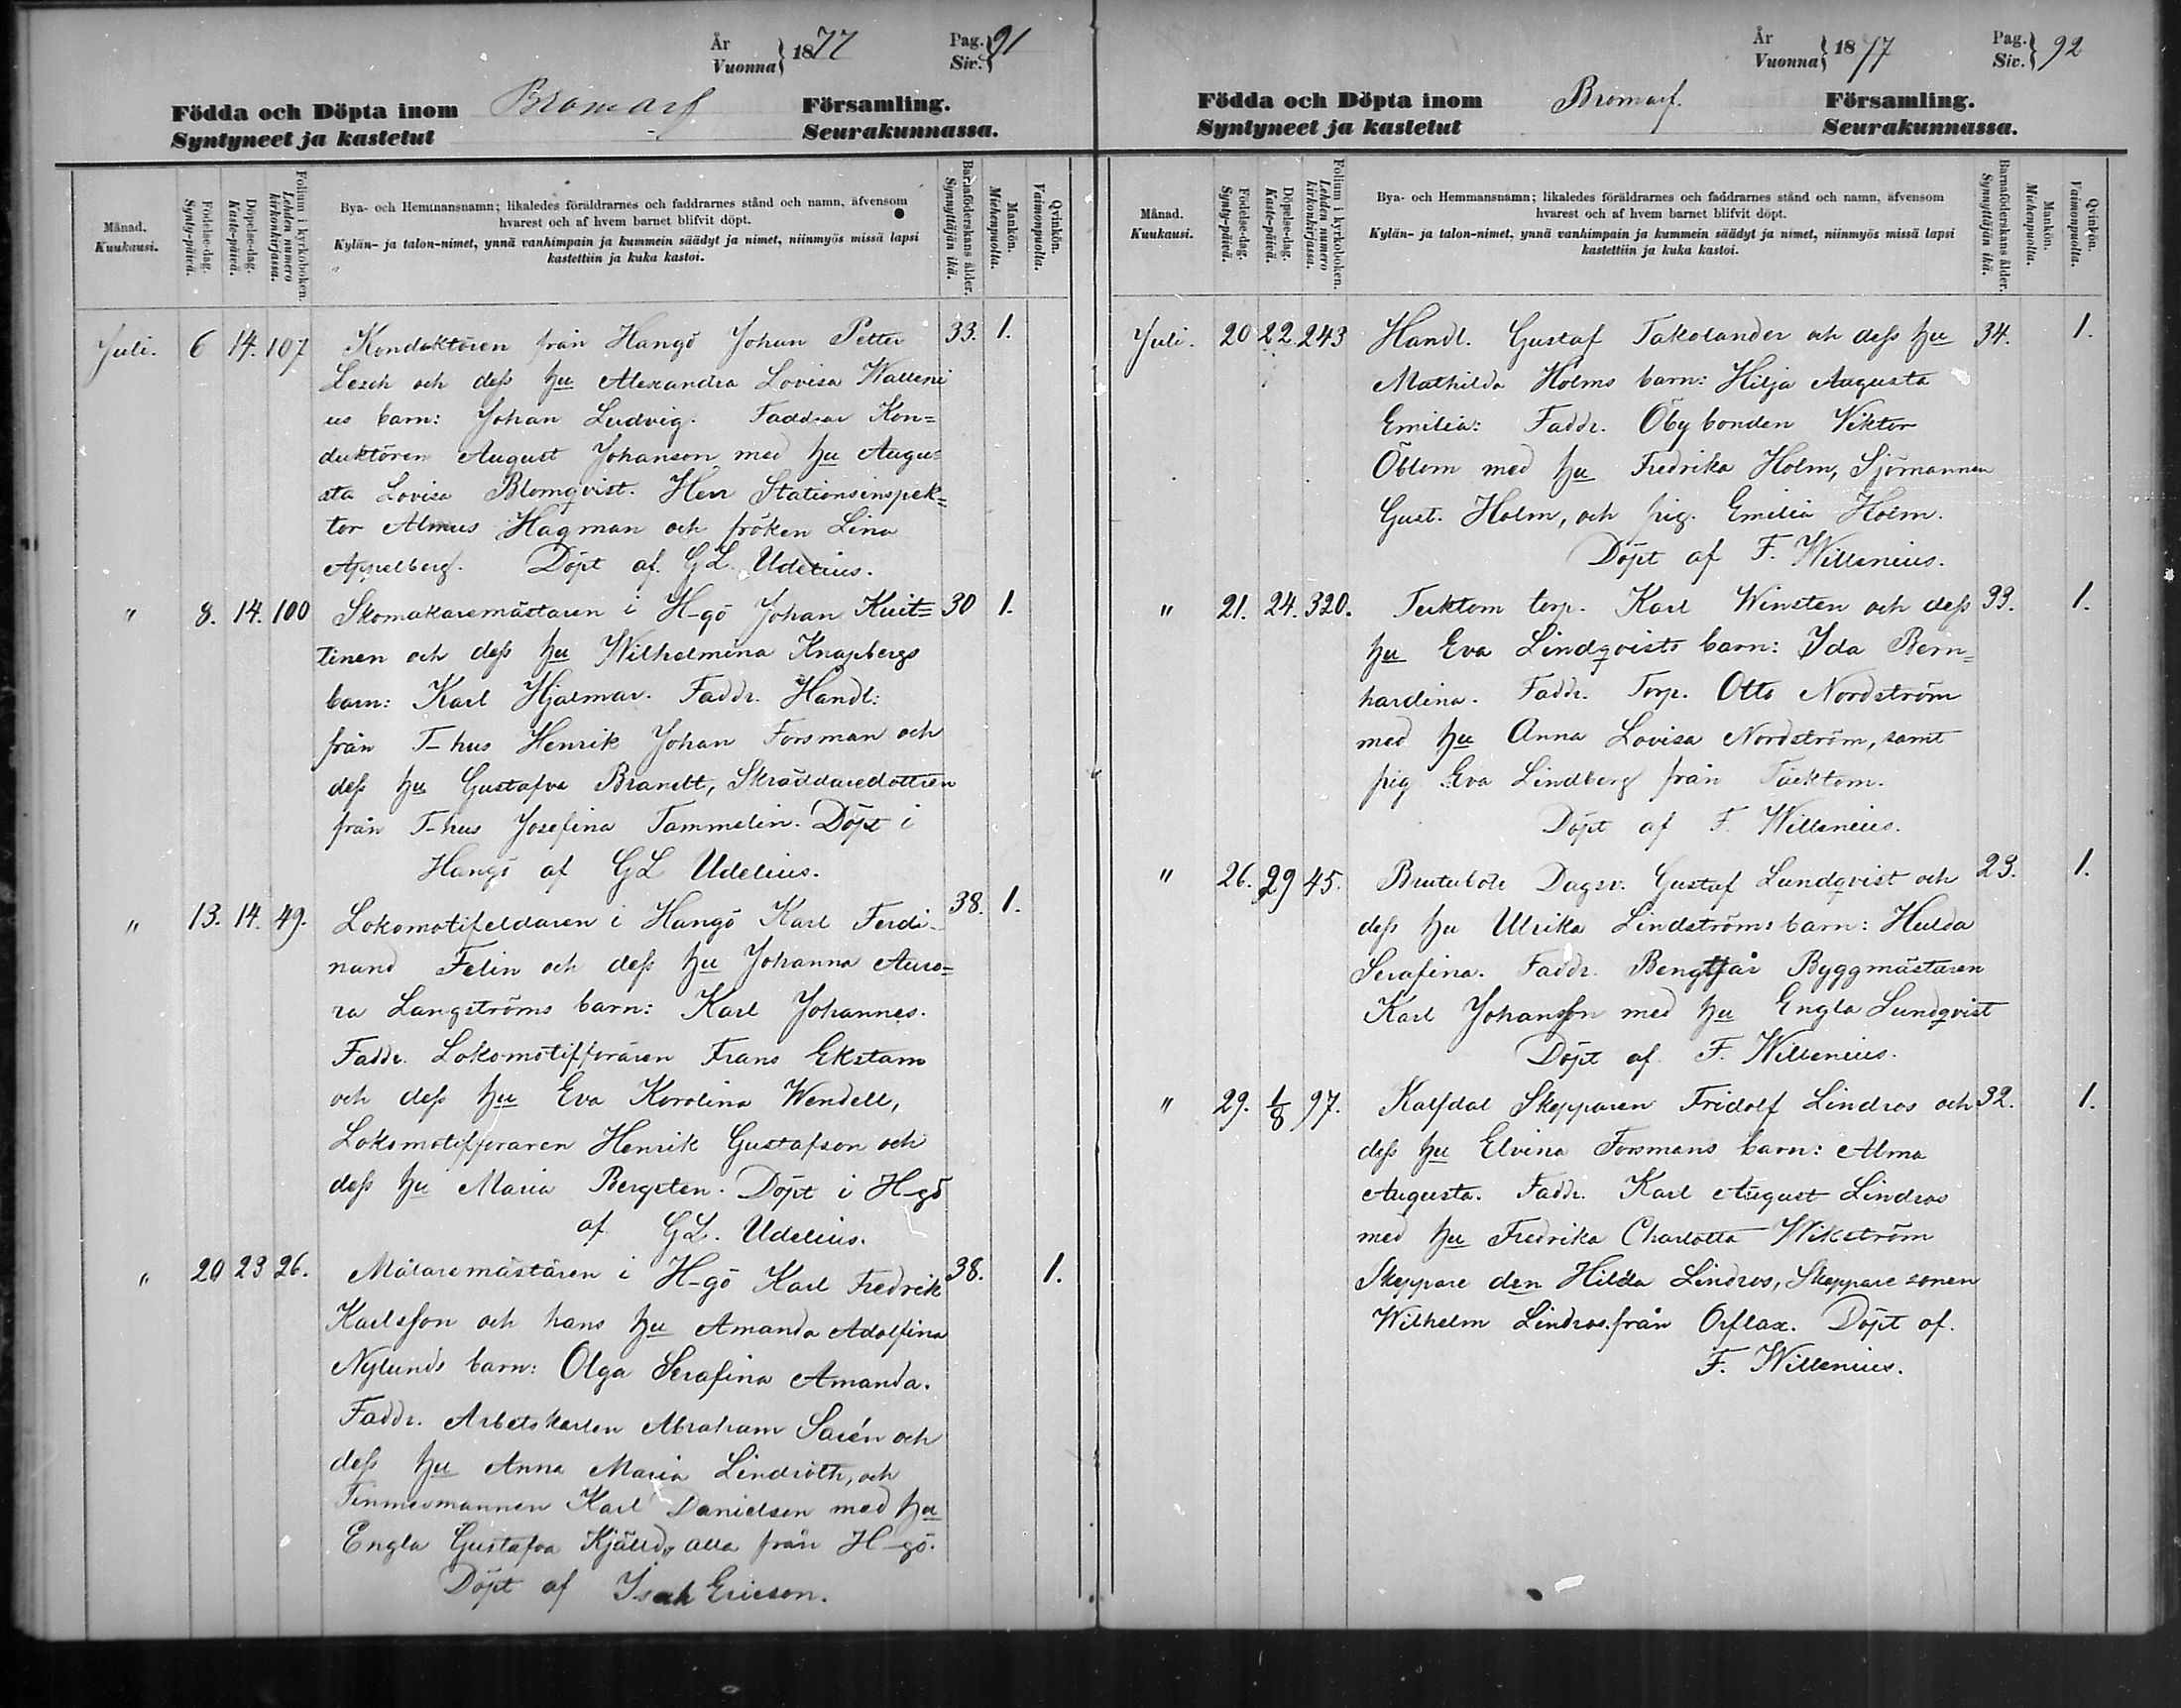 År
Vuonna } 1877
Pag.
Siv. } 91
Födda och Döpta inom Bromarf Församling.
Syntyneet ja kastetut Seurakunnassa.
Månad.
Kuukausi.
Födelse-dag.
Synty-päivä.
Döpelse-dag.
Kaste-päivä.
Folium i kyrkoboken.
Lehden numero
kirkonkirjassa.
Bya- och Hemmansnamn; likaledes föräldrarnes och faddrarnes stånd och namn, äfvensom
hvarest och af hvem barnet blifvit döpt.
Kylän- ja talon-nimet, ynnä vanhimpain ja kummein säädyt ja nimet, niinmyös missä lapsi
kastettiin ja kuka kastoi.
Barnaföderskans ålder.
Synnyttäjän ikä.
Mankön.
Miehenpuolia.
Qvinkön.
Vaimonpuolia.
Juli. 6 14. 107 Konduktören från Hangö Johan Petter 33. 1.
Lesch och dess hu Alexandra Lovisa Walleni
us barn: Johan Ludvig. Faddrar Kon=
duktören August Johanson med hu Augu=
sta Lovisa Blomqvist. Herr Stationsinspek=
tor Almus Hagman och fröken Lina
Appelberg. Döpt af. G L. Udelius.
" 8. 14. 100 Skomakaremästaren i H-gö Johan Kuit= 30 1.
tinen och dess hu Wilhelmina Knapbergs
barn: Karl Hjalmar. Faddr. Handl:
från T-hus Henrik Johan Forsman och
dess hu Gustafva Brandt, Skräddaredottren
från T-hus Josefina Tammelin. Döpt i
Hangö af G L Udelius.
" 13. 14. 49. Lokomotifeldaren i Hangö Karl Ferdi- 38. 1.
nand Felin och dess hu Johanna Auro=
ra Langströms barn: Karl Johannes.
Faddr. Lokomotifföraren Frans Ekstam
och dess hu Eva Karolina Wendell,
Lokomotifföraren Henrik Gustafson och
dess hu Maria Bergsten. Döpt i H-gö
af G L. Udelius.
" 20 23 26. Målaremästaren i H-gö Karl Fredrik 38. 1.
Karlsson och hans hu Amanda Adolfina
Nylunds barn: Olga Serafina Amanda.
Faddr. Arbetskarlen Abraham Sarén och
dess hu Anna Maria Lindroth, och
Timmermannen Karl Danielsen med hu
Engla Gustafva Kjälld, alla från H-gö.
Döpt af Isak Ericson.
År
Vuonna } 1877
Pag.
Siv. } 92
Födda och Döpta inom Bromarf. Församling.
Syntyneet ja kastetut Seurakunnassa.
Månad.
Kuukausi.
Födelse-dag.
Synty-päivä.
Döpelse-dag.
Kaste-päivä.
Folium i kyrkoboken.
Lehden numero
kirkonkirjassa.
Bya- och Hemmansnamn; likaledes föräldrarnes och faddrarnes stånd och namn, äfvensom
hvarest och af hvem barnet blifvit döpt.
Kylän- ja talon-nimet, ynnä vanhimpain ja kummein säädyt ja nimet, niinmyös missä lapsi
kastettiin ja kuka kastoi.
Barnaföderskans ålder.
Synnyttäjän ikä.
Mankön.
Miehenpuolia.
Qvinkön.
Vaimonpuolia.
Juli. 20 22. 243 Handl. Gustaf Takolander och dess hu 34. 1.
Mathilda Holms barn: Hilja Augusta
Emilia: Faddr. Öby bonden Viktor
Öblom med hu Fredrika Holm, Sjömannen
Gust. Holm, och pig. Emilia Holm.
Döpt af F. Willenius.
" 21. 24. 320. Tecktom torp. Karl Winsten och dess 33. 1.
hu Eva Lindqvists barn: Ida Bern=
hardina. Faddr. Torp. Otto Nordström
med hu Anna Lovisa Nordström, samt
pig Eva Lindberg från Täcktom.
Döpt af F. Willenius.
" 26. 29 45. Brutubole Dagsv. Gustaf Lundqvist och 23. 1.
dess hu Ulrika Lindströms barn: Hulda
Serafina. Faddr. Bengtsår Byggmästaren
Karl Johansson med hu Engla Lundqvist
Döpt af F. Willenius.
" 29. 1/8 97. Kalfdal Skepparen Fridolf Lindros och 32. 1.
dess hu Elvina Forsmans barn: Alma
Augusta. Faddr. Karl August Lindros
med hu Fredrika Charlotta Wikström
Skeppare den Hilda Lindros, Skeppare sonen
Wilhelm Lindros från Orflax. Döpt af.
F. Willenius.